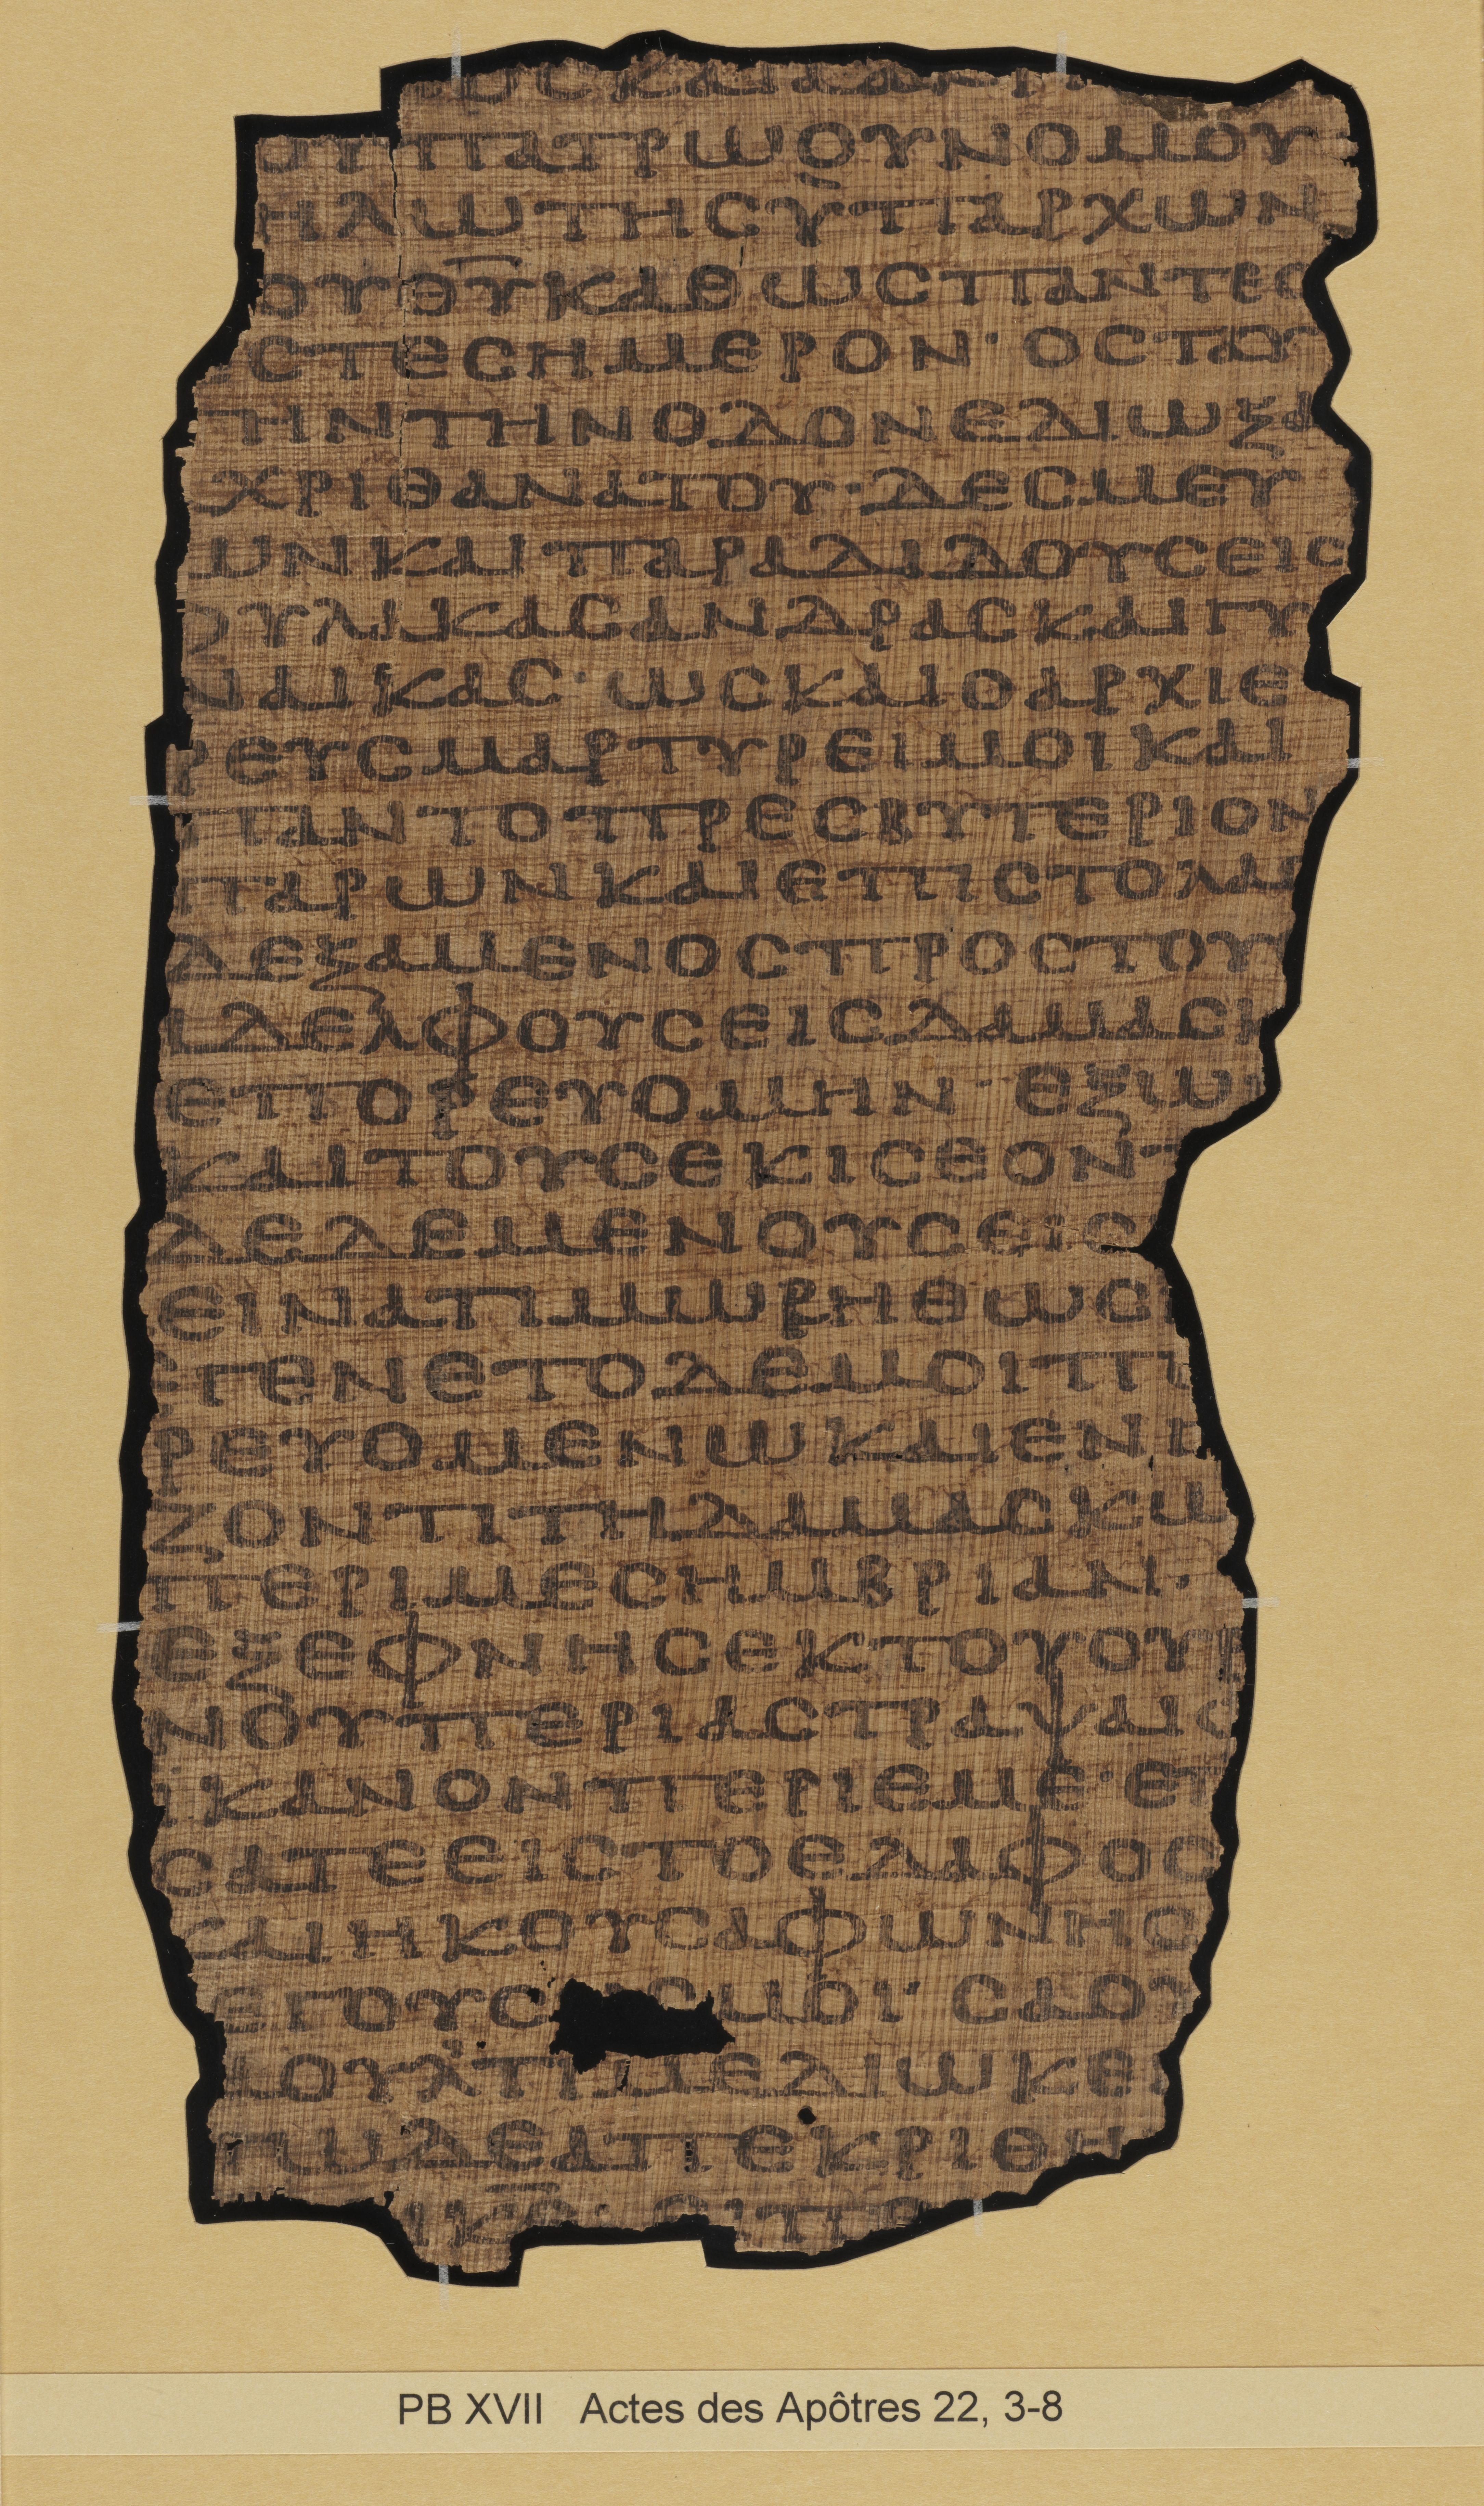 ΟΥΠΑΤΡΩΟΥΝΟΜΟΥ
ΗΛΩΤΗΣΥΠΑΡΧΩΝ
ΟΥΘ̅Υ̅ΚΑΘΩΣΠΑΝΤΕΣ
ΣΤΕΣΗΜΕΡΟΝ· ΟΣΤΑΥ
ΤΗΝΤΗΝΟΔΟΝΕΔΙΩΞΑ
ΧΡΙΘΑΝΑΤΟΥ· ΔΕΣΜΕΥ
ΩΝΚΑΙΠΑΡΑΔΙΔΟΥΣΕΙΣ
ΦΥΛΑΚΑΣΑΝΔΡΑΣΚΑΙΓΥ
ΝΑΙΚΑΣ· ΩΣΚΑΙΟΑΡΧΙΕ
ΡΕΥΣΜΑΡΤΥΡΕΙΜΟΙΚΑΙ
ΠΑΝΤΟΠΡΕΣΒΥΤΕΡΙΟΝ
ΠΑΡΩΝΚΑΙΕΠΙΣΤΟΛΑΣ
ΔΕΞΑΜΕΝΟΣΠΡΟΣΤΟΥ
ΑΔΕΛΦΟΥΣΕΙΣΔΑΜΑΣΚ
ΕΠΟΡΕΥΟΜΗΝ· ΕΞΩ
ΚΑΙΤΟΥΣΕΚΙΣΕΟΝΤ
ΔΕΔΕΜΕΝΟΥΣΕΙΣ
ΕΙΝΑΤΙΜΩΡΗΘΩΣ
ΕΓΕΝΕΤΟΔΕΜΟΙΠ
ΡΕΥΟΜΕΝΩΚΑΙΕΝΓ
ΖΟΝΤΙΤΗΔΑΜΑΣΚΩ
ΠΕΡΙΜΕΣΗΜΒΡΙΑΝ·
ΕΞΕΦΝΗΣΕΚΤΟΥΟΥΡ
ΝΟΥΠΕΡΙΑΣΤΡΑΨΑΙΣ
ΙΚΑΝΟΝΠΕΡΙΕΜΕ· ΕΠ
ΣΑΤΕΕΙΣΤΟΕΔΑΦΟΣ
ΚΑΙΗΚΟΥΣΑΦΩΝΗΣ
ΕΓΟΥΣ ΜΟΙ· ΣΑΟΥ
ΑΟΥΛΤΙΜΕΔΙΩΚΕ
ΓΩΔΕΑΠΕΚΡΙΘΗ
PB XVII Actes des Apôtres 22, 3-8